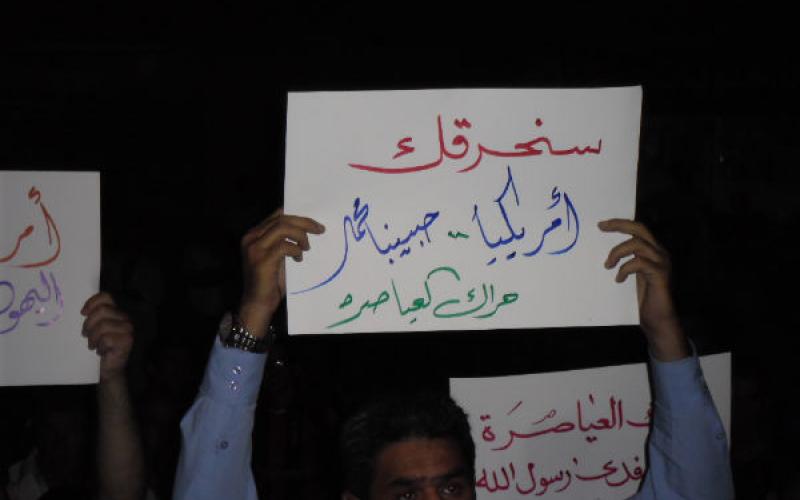 سنحرقك
أمريكيا .. حبيبنا محمد
حراك العياصره
ك العياصرة
فدى رسول الله
أمر
اليهو